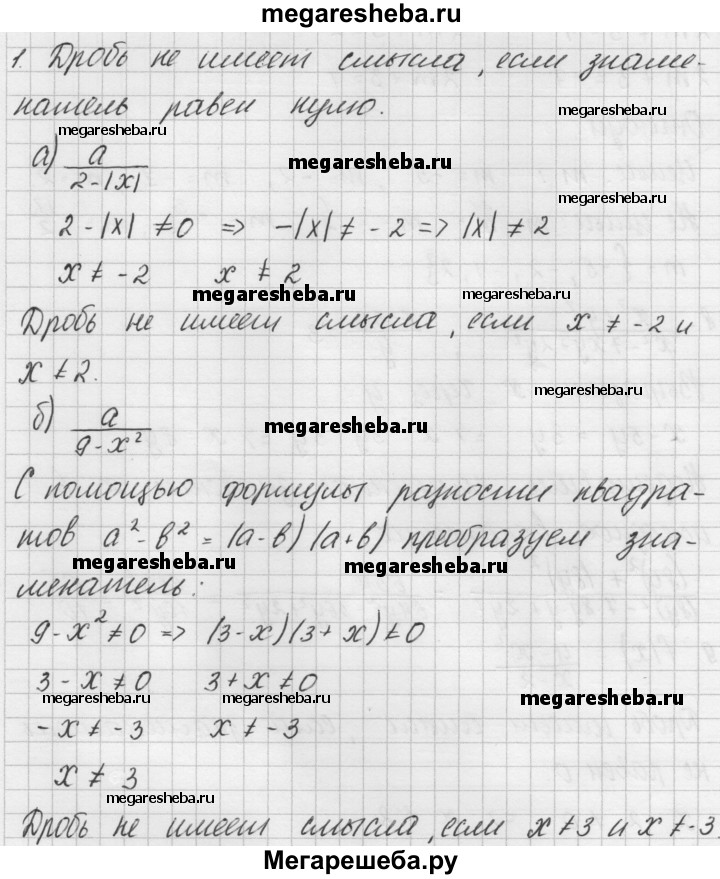 megaresheba.ru
1. Дробь не имеет смысла, если знаме-
натель равен нулю.
megaresheba.ru
megaresheba.ru
а) a/(2-|x|)
megaresheba.ru
megaresheba.ru
2-|x| ≠ 0 => -|x| ≠ -2 => |x| ≠ 2
x ≠ -2 x ≠ 2
megaresheba.ru
megaresheba.ru
Дробь не имеет смысла, если x ≠ -2 и
x ≠ 2.
megaresheba.ru
б) a/(9-x²)
megaresheba.ru
С помощью формулы разности квадра-
тов a²-b² = (a-b)(a+b) преобразуем зна-
megaresheba.ru
megaresheba.ru
менатель:
9-x² ≠ 0 => (3-x)(3+x) ≠ 0
3-x ≠ 0 3+x ≠ 0
megaresheba.ru
megaresheba.ru
megaresheba.ru
-x ≠ -3 x ≠ -3
x ≠ 3
megaresheba.ru
Дробь не имеет смысла, если x ≠ 3 и x ≠ -3.
Мегарешеба.ру